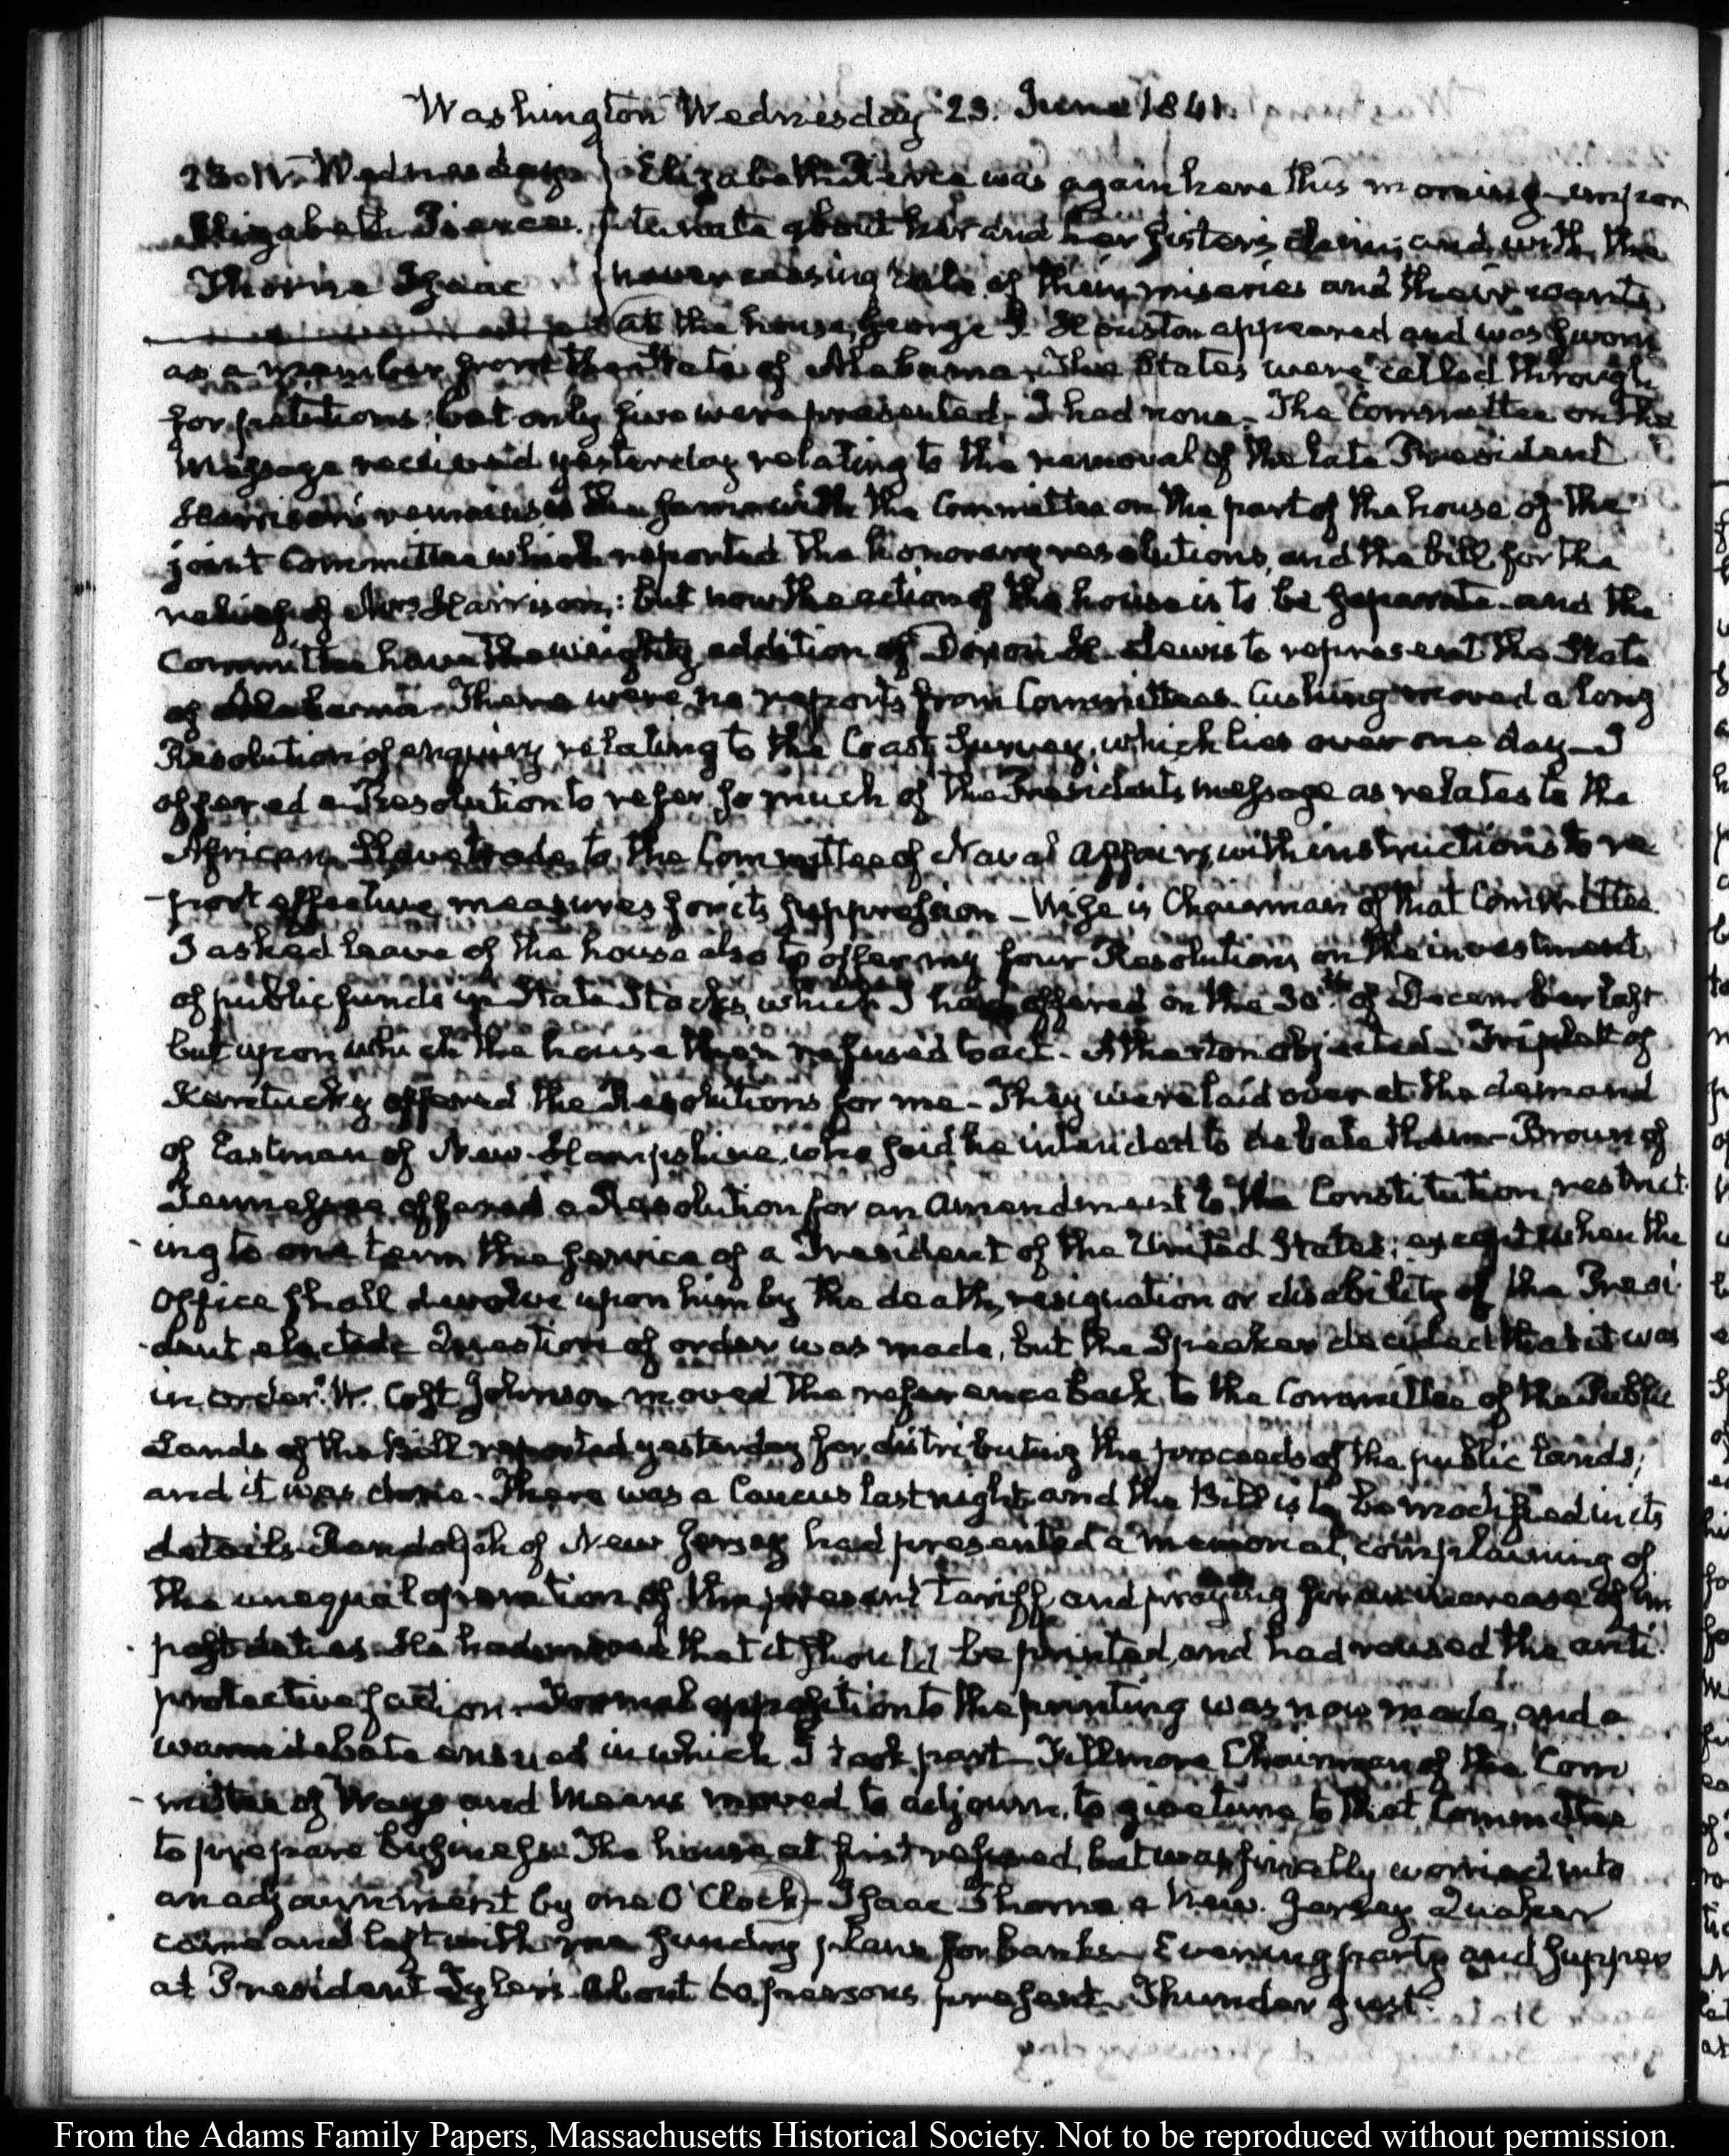 Washington Wednesday 23. June 1841.
23. IV. Wednesday
Elizabeth Pierce.
Thorne Isaac
Elizabeth Pierce was again here this morning impor
tunate about her and her Sisters claim, and with the
never ceasing tale of their miseries and their wants
at the house, George S. Houston appeared and was sworn
as a member from the State of Alabama. The States were called through
for petitions: but only five were presented. I had none. The Committee on the
Message received yesterday relating to the removal of the late President
Harrison's remains is the same with the Committee on the part of the house of the
joint Committee which reported the honorary resolutions, and the bill for the
relief of Mrs. Harrison: but now the action of the house is to be separate and the
Committee have the weighty addition of Dixon H. Lewis to represent the State
of Alabama. There were no reports from Committees. Cushing moved a long
Resolution of enquiry relating to the Coast Survey, which lies over one day. I
offered a Resolution to refer so much of the President's message as relates to the
African Slave trade, to the Committee of Naval Affairs, with instructions to re
-port effective measures for its suppression - Wise is Chairman of that Committee.
I asked leave of the house also to offer my four Resolutions on the investment
of public funds in State Stocks, which I had offered on the 30th. of December last
but upon which the house then refused to act - Atherton objected - Triplett of
Kentucky offered the Resolutions for me - They were laid over at the demand
of Eastman of New-Hampshire, who said he intended to debate them - Brown of
Tennessee offered a Resolution for an amendment to the Constitution, restrict-
-ing to one term the service of a President of the United States; except when the
Office shall devolve upon him by the death, resignation or disability of the Presi-
-dent elected. Question of order was made, but the Speaker decided that it was
in order. W. Cost Johnson moved the reference back to the Committee of the Public
Lands of the Bill reported yesterday for distributing the proceeds of the public lands;
and it was done. There was a Caucus last night and the Bill is to be modified in its
details. Randolph of New Jersey had presented a memorial, complaining of
the unequal operation of the present tariff and praying for an increase of im
post duties. He had moved that it should be printed, and had roused the anti-
protective faction. Formal opposition to the printing was now made, and a
warm debate ensued in which I took part - Fillmore Chairman of the Com
-mittee of Ways and Means moved to adjourn, to give time to that Committee
to prepare business. The house at first refused, but was finally worried into
an adjournment by one O'Clock - Isaac Thorne a New-Jersey Quaker
came and left with me funding plans for banks. Evening party and supper
at President Tyler's. About 60 persons present. Thunder gust.
From the Adams Family Papers, Massachusetts Historical Society. Not to be reproduced without permission.